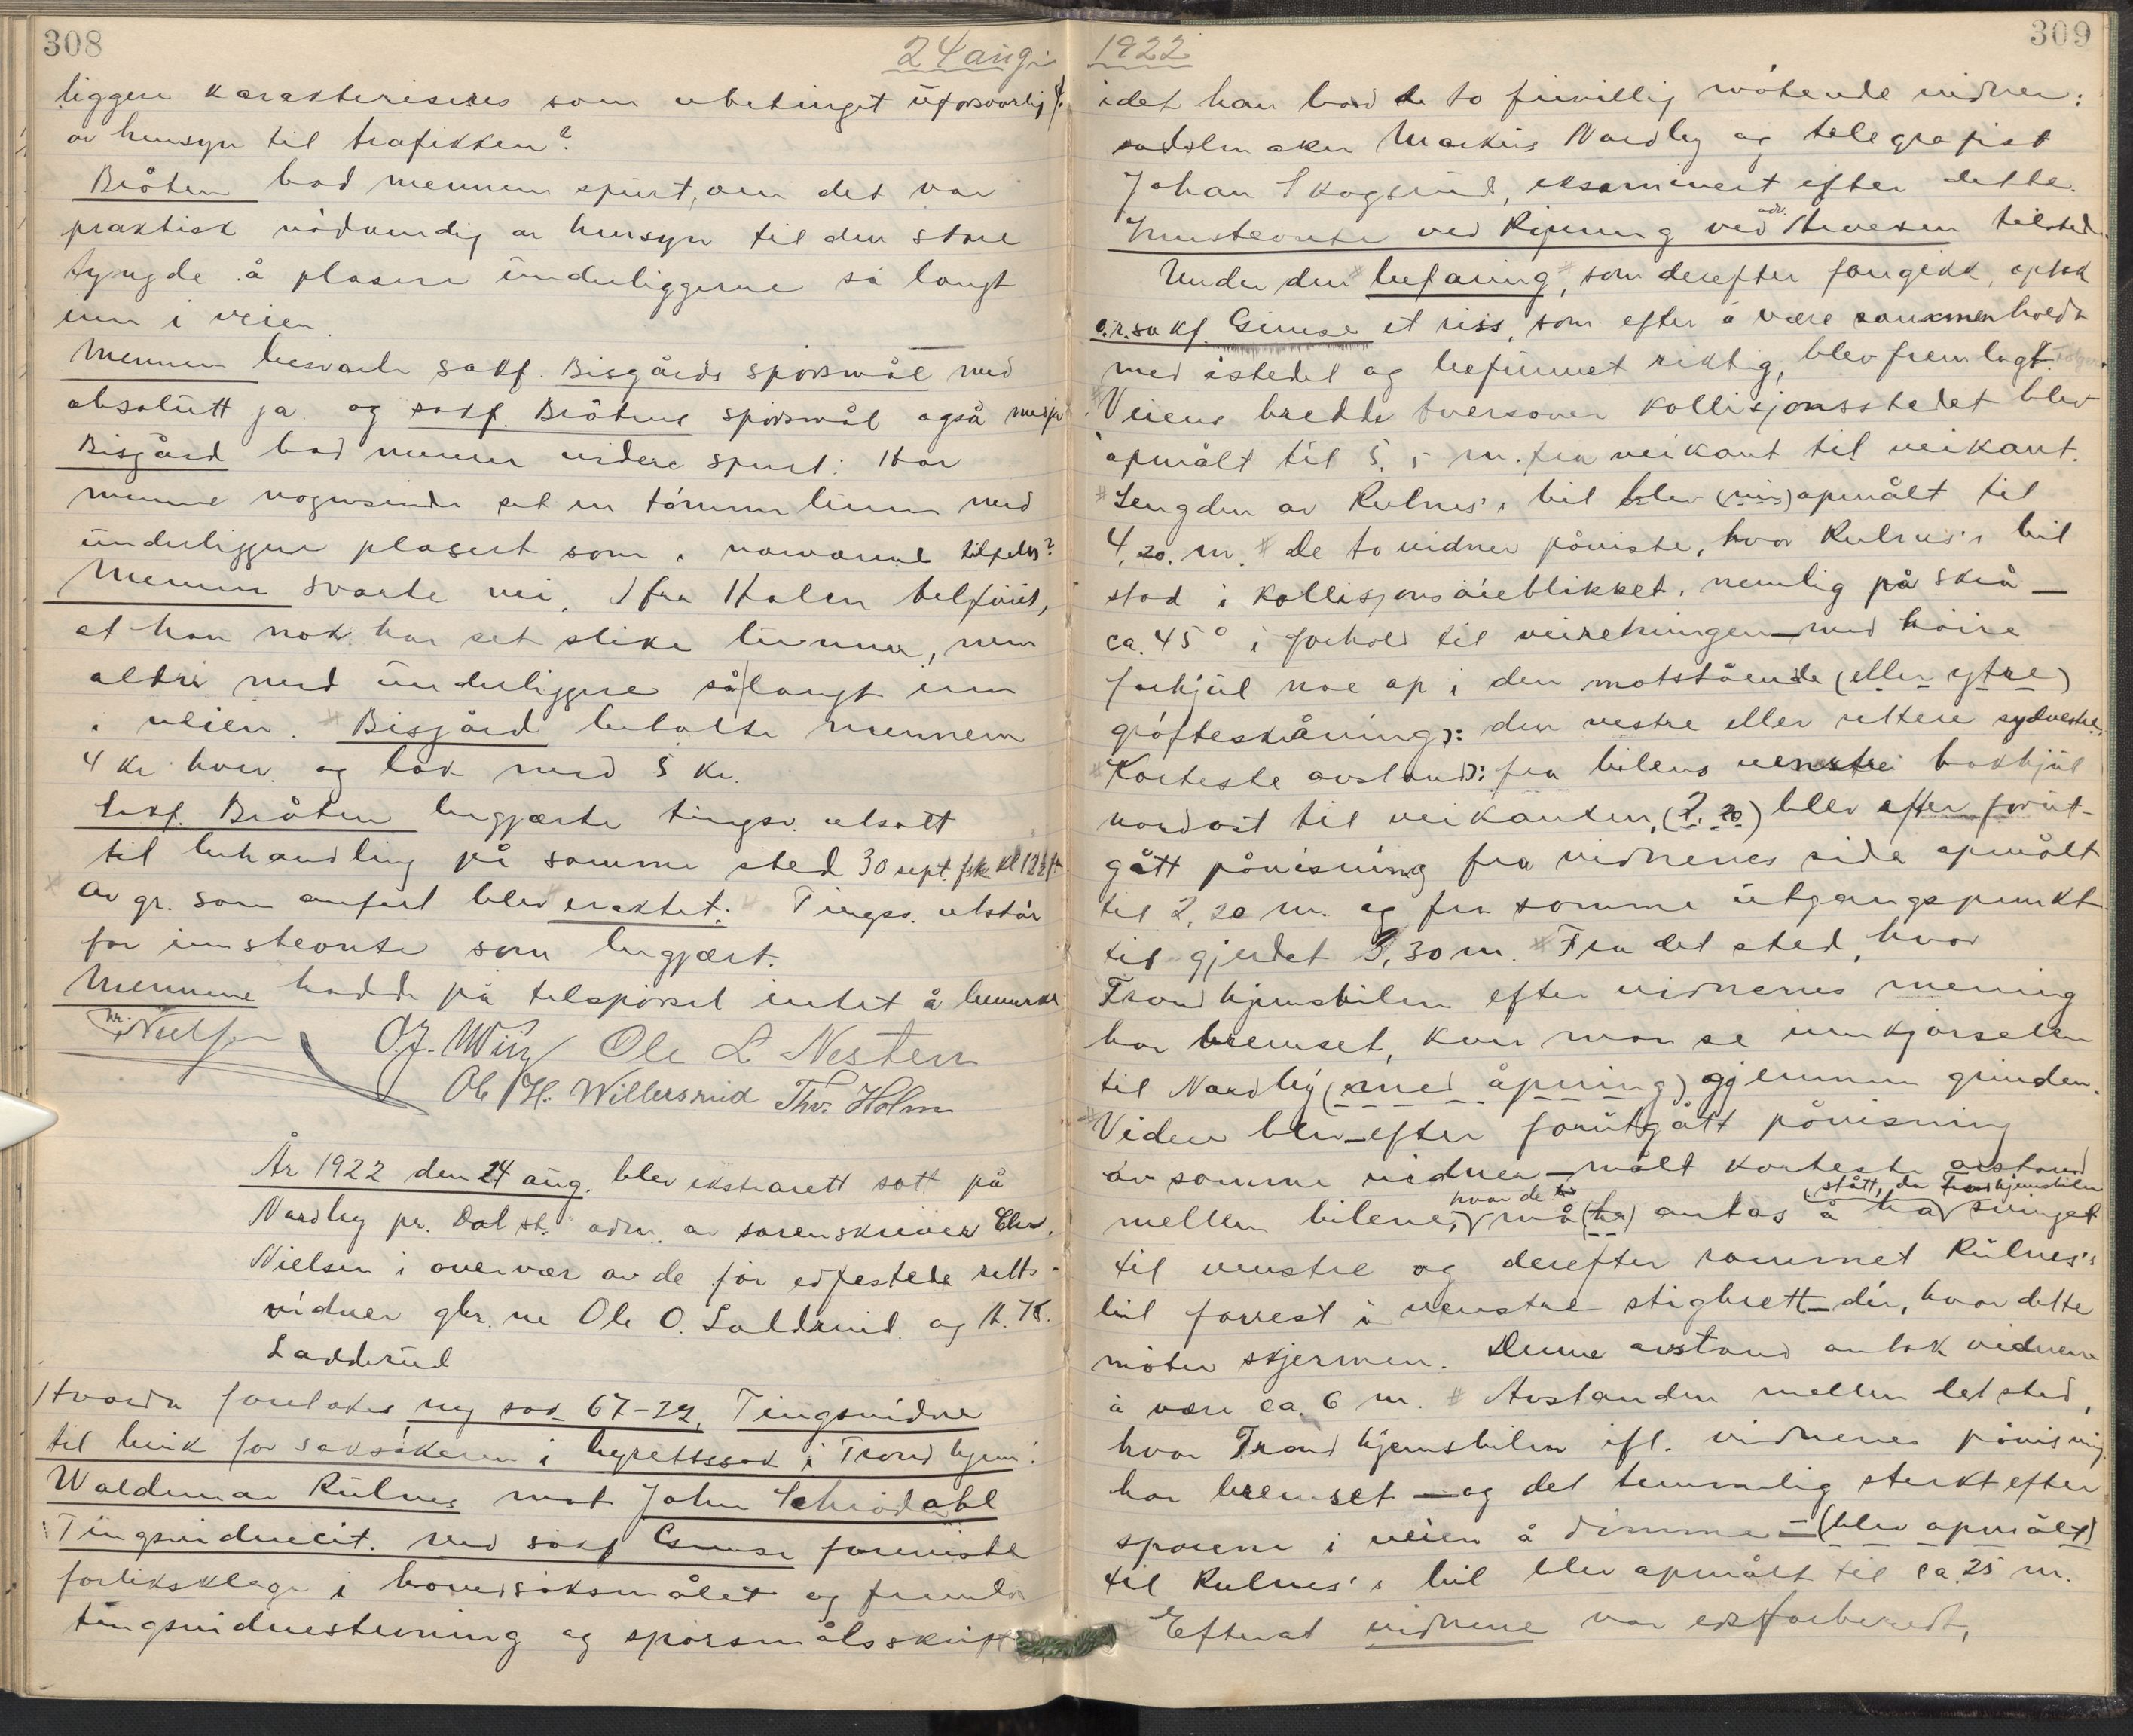 308
24 aug.
liggere karakteriseres som ubetinget uforsvarlig
av hensyn til trafikken?
Bråten bad mennene spurt, om det var
praktisk nødvendig av hensyn til den store
tyngde å plasere underliggerne så langt
inn i veien.
Mennene besvarte sakf. Bisgårds spørsmål med
absolutt ja og sakf. Bråtens spørsmål også med ja
Bisgård bad mennene videre spurt: Har
mennene nogensinde set en tømmerlunne med
underliggere plasert som i nærværende tilfelle?
Mennene svarte nei. Ifra Holen tilføiet,
at han nok har set slike lunner, men
aldri med underliggere så langt inn
i veien. Bisgård betalte mennene
4 kr hver og lok med 5 kr.
Sakf. Bråten begjærte tingsv. utsatt
til behandling på samme sted 30 sept. fsk. kl 12½
Av gr. som anført blev eraktet: Tingsv. utstår
for innstevnte som begjært.
Mennene hadde på tilspørsel intet å bemerke
Chr. Nielsen O.J. Wiig Ole L Nesten
Ole H. Willersrud Thv. Holm
År 1922 den 24 aug. blev ekstrarett satt på
Nordby pr. Dal st. adm. av sorenskriver Chr.
Nielsen i overvær av de før edfestede retts-
vidner gbr.ne Ole O. Ladderud og K. K.
Ladderud
Hvorda foretokes ny sak 67-22, Tingsvidne
til bruk for saksøkeren i byrettssak i Trondhjem:
Waldemar Rulnes mot John Schrødahl
Tingsvidnecit. ved sakf Gimse foreviste
forliksklage i hovedsøksmålet og fremla
tingsvidnestevning og spørsmålsskrift
1922
309
idet han bad de to frivillig møtende vidner:
sadelmaker Markus Nordby og telegrafist
Johan Skogsrud, eksaminert efter dette.
Innstevnte ved Rynning ved adv. Arnesen tilstede.
Under den befaring, som derefter foregikk, optok
o.r.sakf. Gimse et riss, som efter å være sammenholdt
med åstedet og befunnet riktig, blev fremlagt.
Veiens bredde tversover kollisjonsstedet blev
opmålt til 5,5 m. fra veikant til veikant.
Lengden av Rulnes's bil blev (nis) opmålt til
4,20. m. De to vidner påviste, hvor Rulnes's bil
stod i kollisjonsøieblikket, nemlig på skrå –
ca. 45° i forhold til veiretningen – med høire
forhjul noe op i den motstående (eller ytre)
grøfteskråning ): den vestre eller rettere sydvestre.
Korteste avstand ): fra bilens venstre bakhjul
nordøst til veikanten, (2, 20) blev efter forut-
gått påvisning fra vidnenes side opmålt
til 2,20 m. og fra samme utgangspunkt
til gjerdet 3,30 m. Fra det sted, hvor
Trondhjemsbilen efter vidnenes mening
har bremset, kan man se innkjørselen
til Nordby (med åpning) gjennem grinden.
Videre blev – efter forutgått påvisning
av samme vidner – målt korteste avstand
mellem bilene, hvor de må (ha) antas å ha stått, da Trondhjemsbilen svinget
til venstre og derefter rammet Rulnes's
bil forrest i venstre stigbrett – der, hvor dette
møter skjermen. Denne avstand antok vidnene
å være ca. 6 m. Avstanden mellem det sted,
hvor Trondhjemsbilen ifl. vidnenes påvisning
har bremset – og det temmelig sterkt efter
sporene i veien å dømme – (blev opmålt)
til Rulnes's bil blev opmålt til ca. 25 m.
Efterat vidnene var edsforberedt,